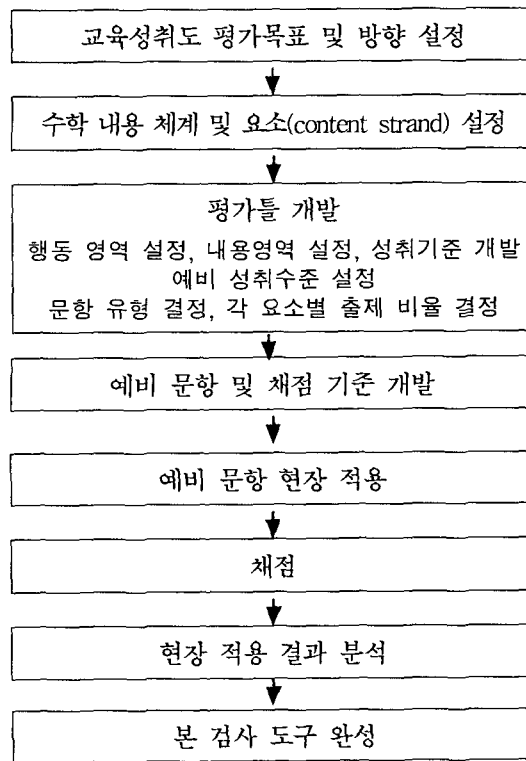 교육성취도 평가목표 및 방향 설정
수학 내용 체계 및 요소(content strand) 설정
평가틀 개발
행동 영역 설정, 내용영역 설정, 성취기준 개발
예비 성취수준 설정
문항 유형 결정, 각 요소별 출제 비율 결정
예비 문항 및 채점 기준 개발
예비 문항 현장 적용
채점
현장 적용 결과 분석
본 검사 도구 완성